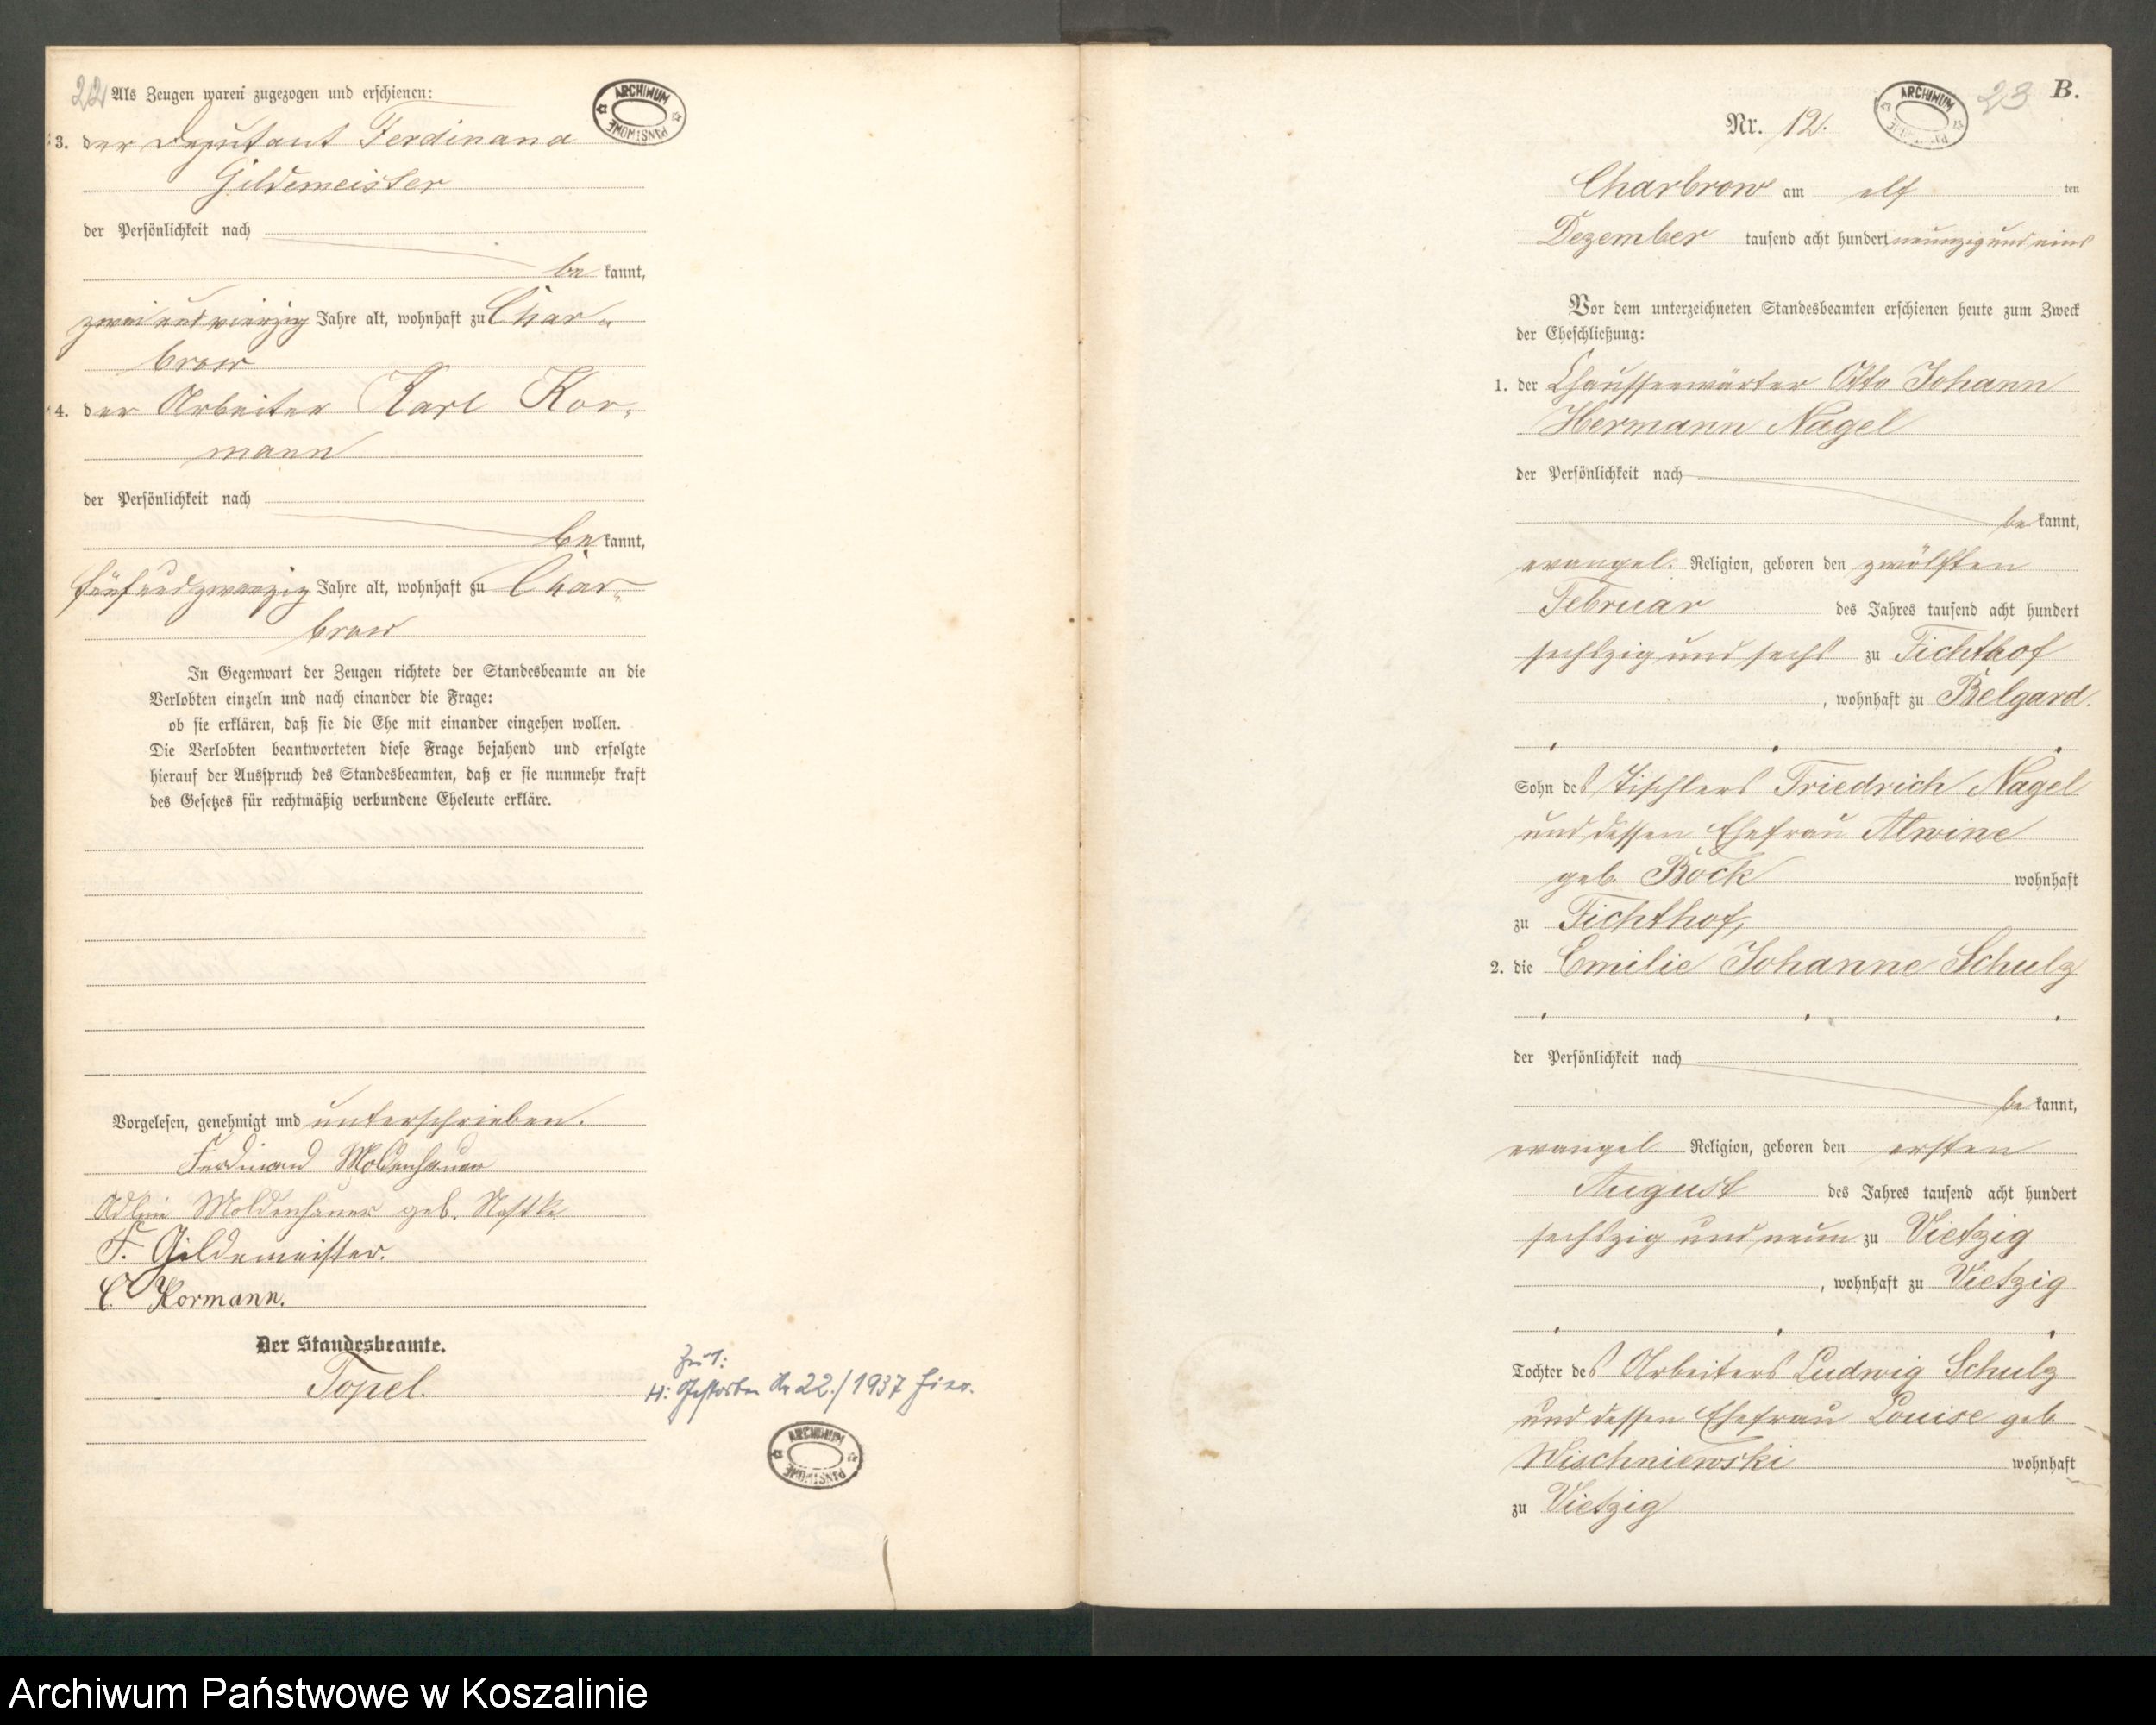 22 Als Zeugen waren zugezogen und erschienen:
3. der Deputant Ferdinand
Gildemeister
der Persönlichkeit nach
be kannt,
zwei und vierzig Jahre alt, wohnhaft zu Char-
brow
4. der Arbeiter Karl Kor-
mann
der Persönlichkeit nach
be kannt,
fünfundzwanzig Jahre alt, wohnhaft zu Char-
brow
In Gegenwart der Zeugen richtete der Standesbeamte an die
Verlobten einzeln und nach einander die Frage:
ob sie erklären, daß sie die Ehe mit einander eingehen wollen.
Die Verlobten beantworteten diese Frage bejahend und erfolgte
hierauf der Ausspruch des Standesbeamten, daß er sie nunmehr kraft
des Gesetzes für rechtmäßig verbundene Eheleute erkläre.
Vorgelesen, genehmigt und unterschrieben.
Ferdinand Moldenhauer
Moldenhauer geb.
F. Gildemeister.
C. Kormann.
Der Standesbeamte.
Topel.
Zu 1:
H: Gestorben Nr 22./1937 hier.
ARCHIWUM PAŃSTWOWE
ARCHIWUM PAŃSTWOWE
ARCHIWUM PAŃSTWOWE
23 B.
Nr. 12.
Charbrow am elf ten
Dezember tausend acht hundert neunzig und eins
Vor dem unterzeichneten Standesbeamten erschienen heute zum Zweck
der Eheschließung:
1. der Chausseewärter Otto Johann
Hermann Nagel
der Persönlichkeit nach
be kannt,
evangel. Religion, geboren den zwölften
Februar des Jahres tausend acht hundert
sechszig und sechs zu Fichthof
, wohnhaft zu Belgard.
Sohn des Tischlers Friedrich Nagel
und dessen Ehefrau Alwine
geb. Böck wohnhaft
zu Fichthof,
2. die Emilie Johanne Schulz
der Persönlichkeit nach
be kannt,
evangel. Religion, geboren den ersten
August des Jahres tausend acht hundert
sechszig und neun zu Vietzig
, wohnhaft zu Vietzig
Tochter des Arbeiters Ludwig Schulz
und dessen Ehefrau Louise geb.
Wischniewski wohnhaft
zu Vietzig
Archiwum Państwowe w Koszalinie